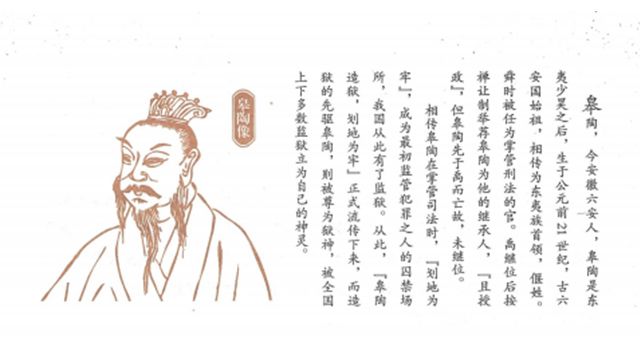 皋陶，今安徽六安人，皋陶是东
夷少昊之后，生于公元前21世纪，古六
安国始祖，相传为东夷族首领，偃姓。
舜时被任为掌管刑法的官。禹继位后按
禅让制举荐皋陶为他的继承人，『且授
政』，但皋陶先于禹而亡故，未继位。
相传皋陶在掌管司法时，『划地为
牢』，成为最初监管犯罪之人的囚禁场
所，我国从此有了监狱。从此，『皋陶
造狱，划地为牢』正式流传下来，而造
狱的先驱皋陶，则被尊为狱神，被全国
上下多数监狱立为自己的神灵。
皋陶像